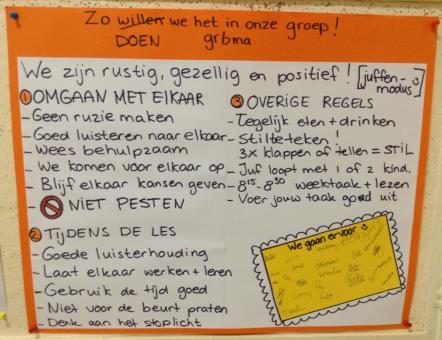 Zo willen we het in onze groep!
DOEN grbma
We zijn rustig, gezellig en positief! [juffen-modus]
1 OMGAAN MET ELKAAR
- Geen ruzie maken
- Goed luisteren naar elkaar
- Wees behulpzaam
- We komen voor elkaar op
- Blijf elkaar kansen geven
- NIET PESTEN
2 TIJDENS DE LES
- Goede luisterhouding
- Laat elkaar werken + leren
- Gebruik de tijd goed
- Niet voor de beurt praten
- Denk aan het stoplicht
3 OVERIGE REGELS
- Tegelijk eten + drinken
- Stilte-teken!
3x klappen of tellen = STIL
- Juf loopt met 1 of 2 kind.
- 8¹⁵-8³⁰ weektaak + lezen
- Voer jouw taak goed uit
We gaan ervoor :)